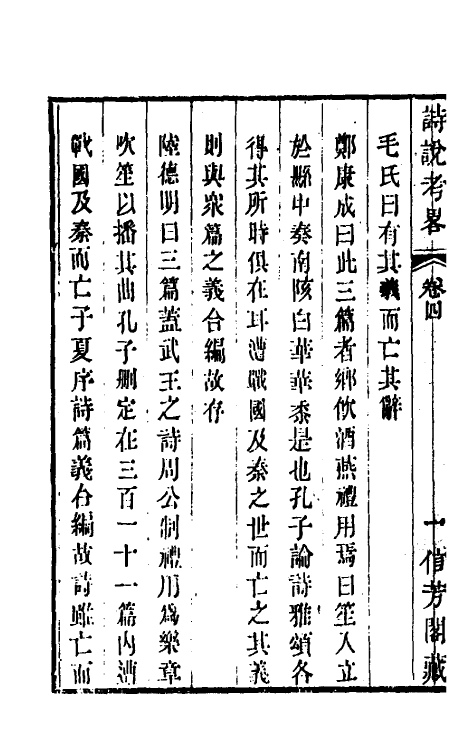 詩說考畧 卷四 一 脩芳閣藏
毛氏曰有其義而亡其辭
鄭康成曰此三篇者鄉飲酒燕禮用焉曰笙入立
於縣中奏南陔白華華黍是也孔子論詩雅頌各
得其所時俱在耳遭戰國及秦之世而亡之其義
則與衆篇之義合編故存
陸德明曰三篇蓋武王之詩周公制禮用爲樂章
吹笙以播其曲孔子刪定在三百一十一篇內遭
戰國及秦而亡子夏序詩篇義合編故詩雖亡而